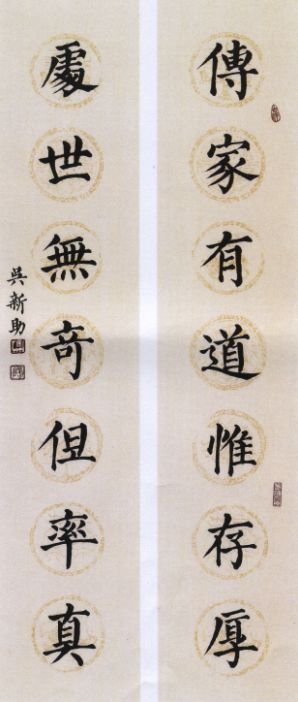 傳家有道惟存厚
處世無奇但率真
吳新助